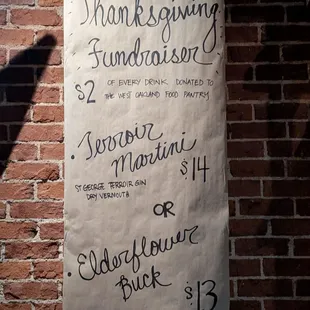 Thanksgiving
Fundraiser
$2 OF EVERY DRINK DONATED TO
THE WEST OAKLAND FOOD PANTRY
• Terroir
Martini
$14
ST GEORGE TERROIR GIN
DRY VERMOUTH
OR
• Elderflower
Buck
$13